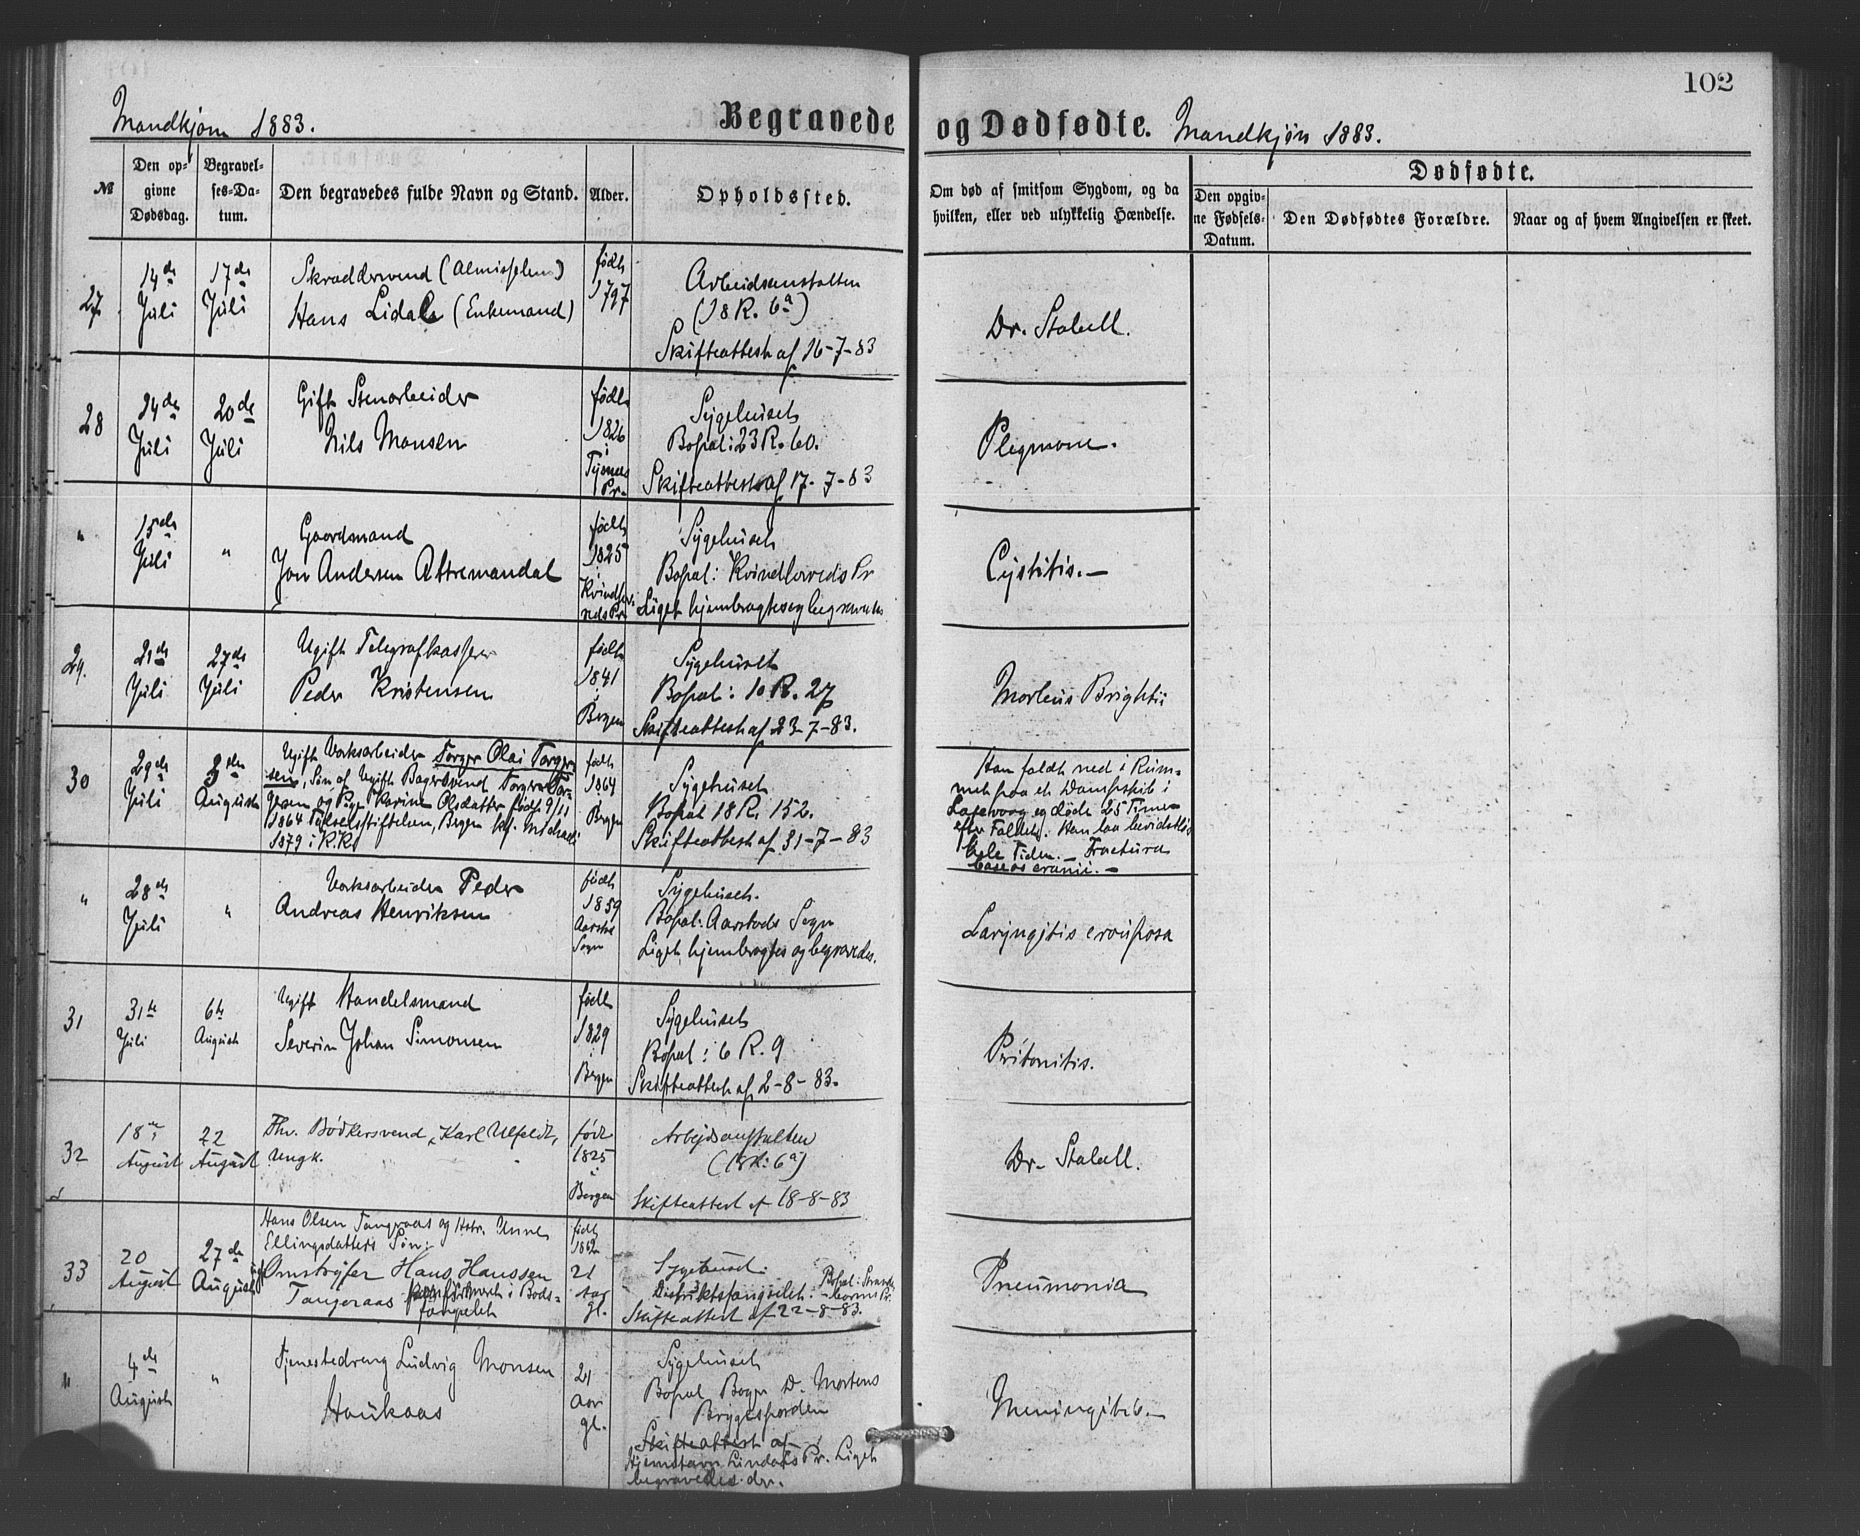 102
Mandkjøn 1883. Begravede og Dødfødte. Mandkjøn 1883.
№
Den opgivne Dødsdag.
Begravelses-Datum.
Den begravedes fulde Navn og Stand.
Alder.
Opholdssted.
Om død af smitsom Sygdom, og da hvilken, eller ved ulykkelig Hændelse.
Dødfødte.
Den opgivne Fødsels-Datum.
Den Dødfødtes Forældre.
Naar og af hvem Angivelsen er skeet.
27
14de Juli
17de Juli
Skrædersvend (Almisselem)
Hans Lidal (Enkemand)
født 1797
Arbeidsanstalten
(18 R. 6a)
Skifteattest af 16-7-83
Dr. Stabell.
28
14de Juli
20de Juli
Gift Stenarbeider
Nils Monsen
født 1826 i Pr.
Sygehuset
Bopæl: 23 R. 60.
Skifteattest af 17-7-83
Plegmone.
"
15de Juli
"
Gaardmand
Jon Andersen
født 1825 i
Sygehuset
Bopæl: Kvindherreds Pr
Liget hjembragtes og begravedes
Cystitis.—
29.
21de Juli
27de Juli
Ugift Telegrafkasserer
Peder Kristensen
født 1841 i Bergen
Sygehuset
Bopæl: 10 R. 27
Skifteattest af 23-7-83.
Morbus Brightii
30
29de Juli
3den August
Ugift Værksarbeider Torger Olai Torger-
sen, Søn af Ugift Bagersvend Torger Tor-
gersen og Pige Karine Olsdatter født 9/11
1864 Fødselsstiftelsen, Bergen kf. Michaeli
1879 i K.K.
født 1864 Bergen
Sygehuset
Bopæl 18 R. 152.
Skifteattest af 31-7-83
Han faldt ned i Rum-
met paa et Dampskib i
Laxevaag og døde 25 Timer
efter Faldet. Han laa bevidstløs
hele Tiden.— Fractura
baseos cranii.—
"
28de Juli
"
Værksarbeider Peder
Andreas Henriksen
født 1859 Aarstad Sogn
Sygehuset.
Bopæl: Aarstads Sogn
Liget hjembragtes og begravedes.
Laryngitis crouposa
31
31te Juli
6te August
Ugift Handelsmand
Severin Johan Simonsen
født 1829 i Bergen
Sygehuset
Bopæl: 6 R. 9
Skifteattest af 2-8-83.
Pritonitis.
32
18de August
22 August
Fhv. Bødkersvend, Karl Ulfeldt,
Ungk.
født 1825 i Bergen
Arbejdsanstalten
(18 R: 6a)
Skifteattest af 18-8-83
Dr. Stabell.
33
20 August
27de August
Hans Olsen Tangeraas og Hstr. Unne
Ellingsdatters Søn:
Omstrejfer Hans Hanssen
Tangeraas konfirmeret i Bods-
fængslet
født 1862
21 Aar gl.
Sygehuset:
Distriktsfængslet. Bopæl: Strande-
barms Pr.
Skifteattest af 22-8-83.
Pneumonia
"
4de August
"
Tjenestedreng Ludvig Monsen
Haukaas
21 Aar gl.
Sygehuset
Bopæl D. Mortens
Bryggesporden
Skifteattest af
Hjemstavn Lindaas Pr. Liget
begravedes der.
Meningitis.—